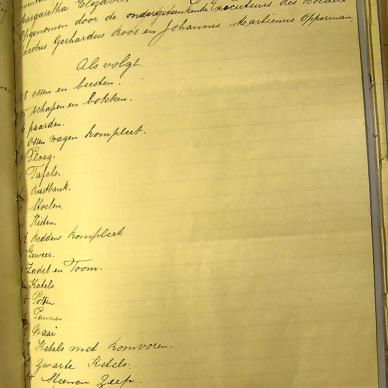 Margaritha Elizabeth
Opgenomen door de ondergetekende Executeurs des Boedels
Jacobus Gerhardus Roos en Johannes Martienus Opperman,
Als volgt.
ossen en beesten.
schapen en bokken.
paarden.
Ossen wagen kompleet.
Ploeg.
Tafels.
Rustbank.
Stoelen.
Kisten.
Beddens kompleet
Geweer.
Zadel en Toom.
Katels
Potten
Pannen
Ketels met komvoren.
Zwarte Ketels.
Steenen Zeep.